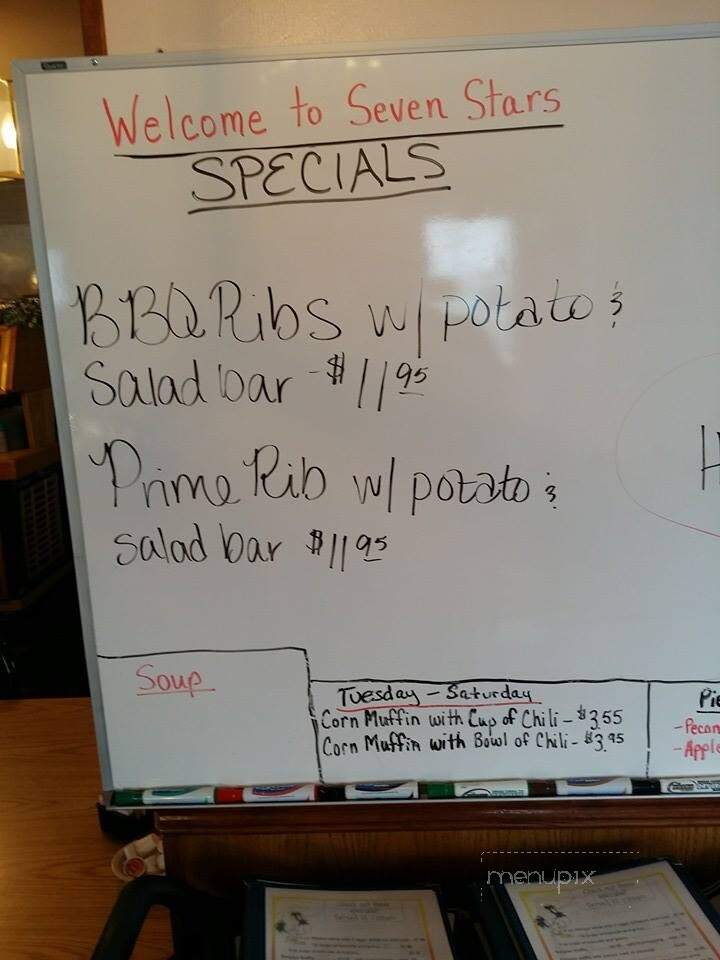 Welcome to Seven Stars
SPECIALS
BBQ Ribs w/ potato &
Salad bar - $11 95
Prime Rib w/ potato &
salad bar $11 95
H
Soup
Tuesday - Saturday
Corn Muffin with Cup of Chili - $3.55
Corn Muffin with Bowl of Chili - $3.95
Pie
- Pecan
- Apple
menupix